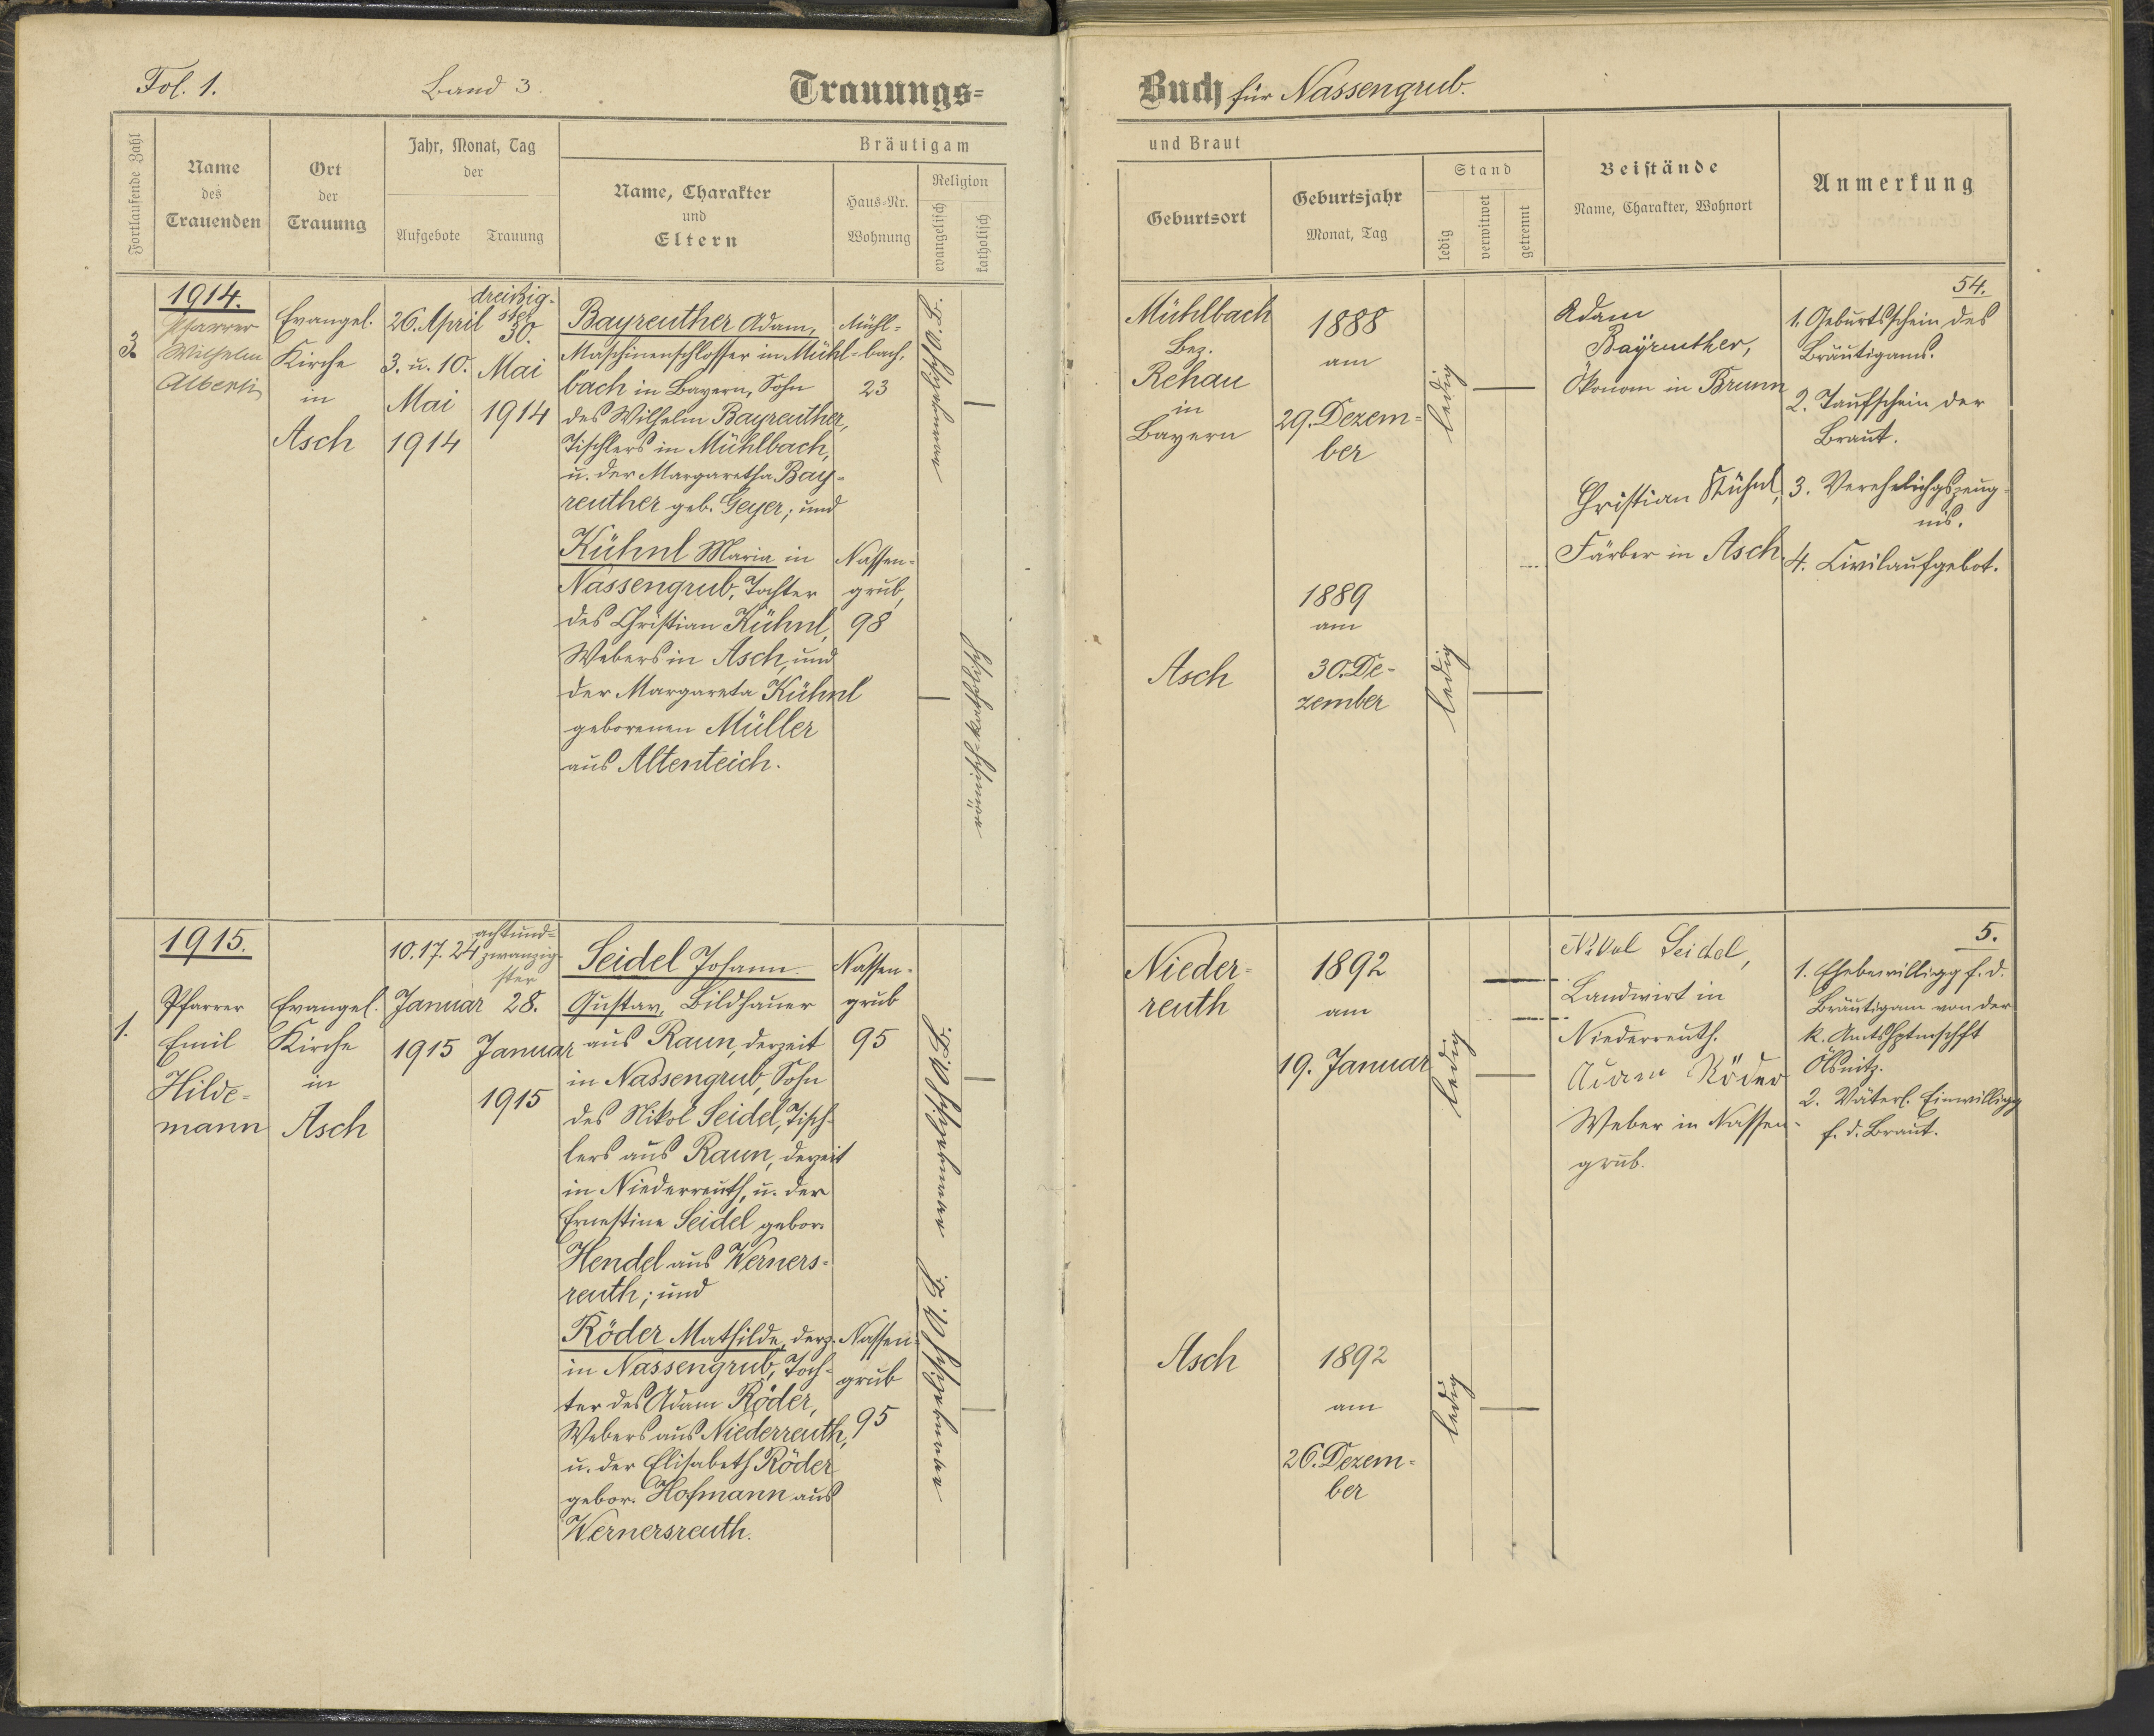 Fol. 1.
Band 3.
Trauungs=
Fortlaufende Zahl
Name
des
Trauenden
Ort
der
Trauung
Jahr, Monat, Tag
der
Aufgebote
Trauung
Bräutigam
Name, Charakter
und
Eltern
Haus-Nr.
Wohnung
Religion
evangelisch
katholisch
1914.
Pfarrer
Wilhelm
Alberti
Evangel.
Kirche
in
Asch
26. April
3. u. 10.
Mai
1914
dreißig-
ster
30.
Mai
1914
Bayreuther Adam,
Maschinenschlosser in Mühl-
bach in Bayern, Sohn
des Wilhelm Bayreuther,
Tischlers in Mühlbach,
u. der Margaretha Bay-
reuther geb. Geyer; und
Kühnl Maria in
Nassengrub, Tochter
des Christian Kühnl,
Webers in Asch, und
der Margareta Kühnl
geborenen Müller
aus Altenteich.
Mühl=
bach,
23
Nassen=
grub,
98
—
—
römisch-katholisch
1915.
1.
Pfarrer
Emil
Hilde=
mann
Evangel.
Kirche
in
Asch
10. 17. 24
Januar
1915
achtund=
zwanzig-
ster
28.
Januar
1915
Seidel Johann
Gustav, Bildhauer
aus Raun, derzeit
in Nassengrub, Sohn
des Nikol Seidel, Tisch-
lers aus Raun, derzeit
in Niederreuth, u. der
Ernestine Seidel gebor.
Hendel aus Werners=
reuth; und
Röder Mathilde, derz.
in Nassengrub, Toch-
ter des Adam Röder,
Webers aus Niederreuth,
u. der Elisabeth Röder
gebor. Hofmann aus
Wernersreuth.
Nassen=
grub
95
Nassen=
grub
95
—
—
Buch für Nassengrub.
und Braut
Geburtsort
Geburtsjahr
Monat, Tag
Stand
ledig
verwitwet
getrennt
Beistände
Name, Charakter, Wohnort
Anmerkung
Mühlbach
Bez.
Rehau
in
Bayern
1888
am
29. Dezem=
ber
ledig
—
Adam
Bayreuther,
Ökonom in Brunn
Christian Kühnl,
Färber in Asch.
54.
1. Geburtsschein des
Bräutigams.
2. Taufschein der
Braut.
3. Verehelichgszeug-
nis.
4. Civilaufgebot.
Asch
1889
am
30. De-
zember
ledig
—
Nieder=
reuth
1892
am
19. Januar
ledig
—
Nikol Seidel,
Landwirt in
Niederreuth.
Adam Röder
Weber in Nassen-
grub.
5.
1. Ehebewilligg f. d.
Bräutigam von der
k. Amtshptmschft
Ölsnitz.
2. Väterl. Einwilligg
f. d. Braut.
Asch
1892
am
26. Dezem=
ber
ledig
—